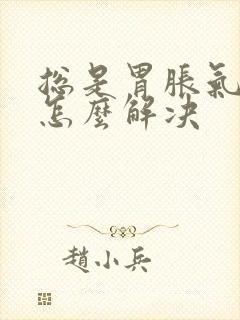 总是胃脹氣
怎麼解决
趙小兵